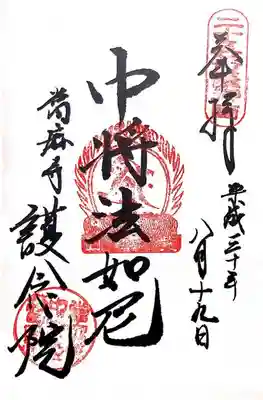 奉拝
平成三十年
八月十九日
中将法如尼
當麻寺
護念院